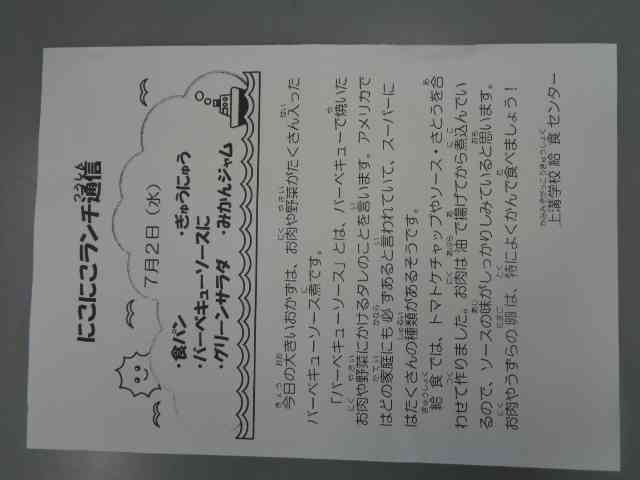 にこにこランチ通信
7月2日(水)
・食パン ・ぎゅうにゅう
・バーベキューソースに
・グリーンサラダ ・みかんジャム
今日の大きいおかずは、お肉や野菜がたくさん入った
バーベキューソース煮です。
「バーベキューソース」とは、バーベキューで焼いた
お肉や野菜にかけるタレのことを言います。アメリカで
はどの家庭にも必ずあると言われていて、スーパーに
はたくさんの種類があるそうです。
給食では、トマトケチャップやソース・さとうを合
わせて作りました。お肉は油で揚げてから煮込んでい
るので、ソースの味がしっかりしみていると思います。
お肉やうずらの卵は、特によくかんで食べましょう!
学校給食センター